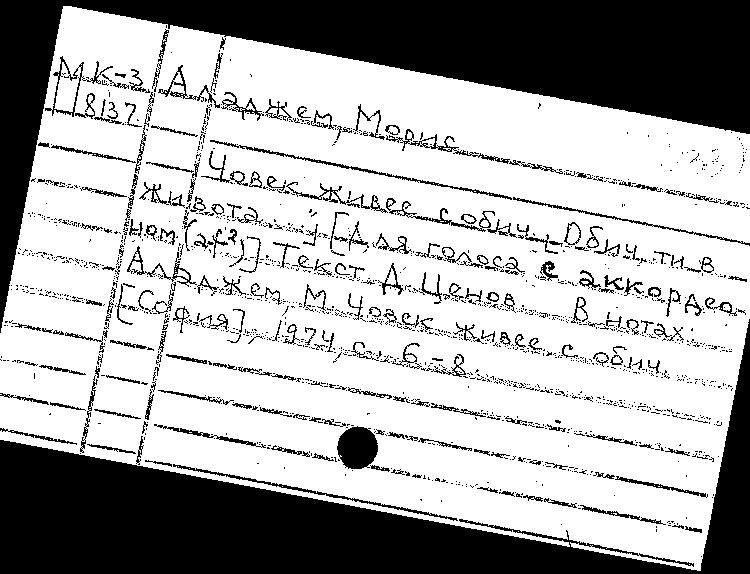 М К-3
8137.
Аладжем, Морис
Човек живее с обич. [Обич, ти в
живота..."] [Для голоса с аккордео-
ном (a, f²)]. Текст Д. Ценов. В нотах:
Аладжем М. Човек живее с обич.
[София], 1974, с. 6-8.